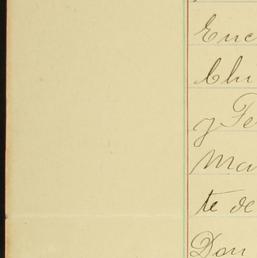 Enc
Clu
y Fe
Ma
te de
Don